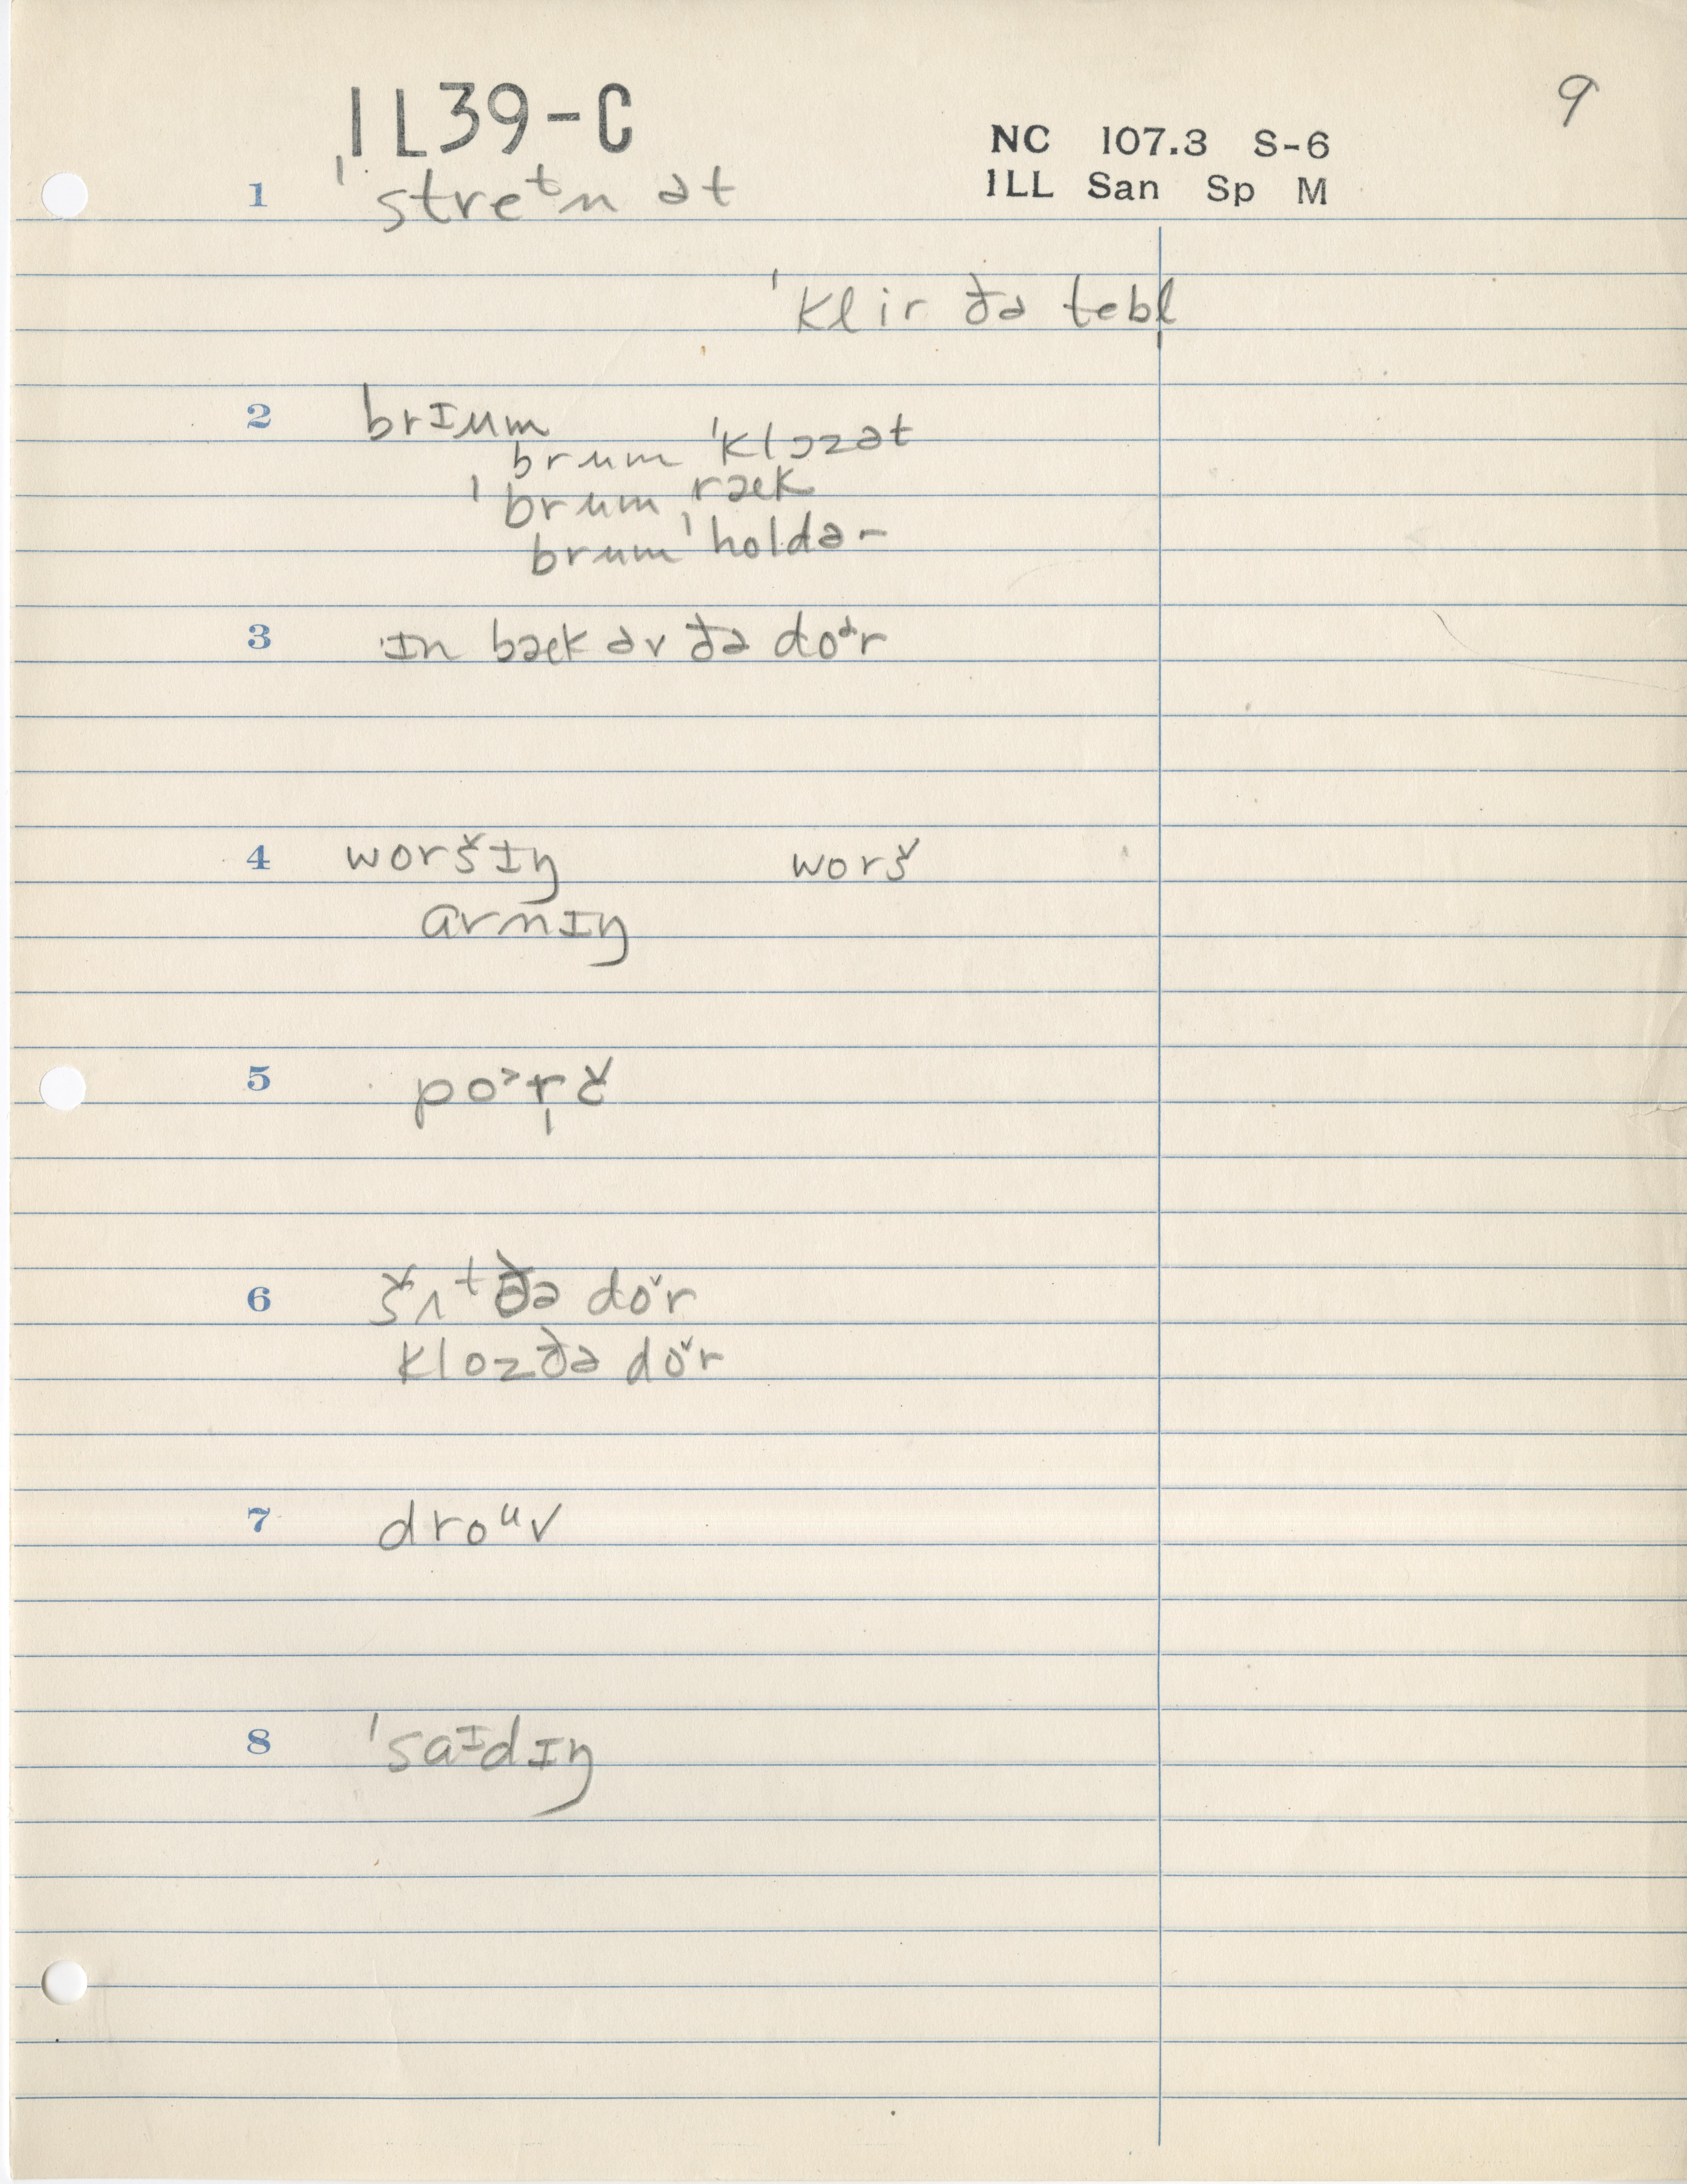 IL39-C
9
NC 107.3 S-6
ILL San Sp M
1 ˈstreᵗn ət
ˈklir ðə tebl̩
2 brɪum
brum ˈklɔzət
ˈbrum ˌræk
brum ˈholdə-
3 ˈɪn bæk əv ðə doᵊr
4 woršɪŋ worš
arnɪŋ
5 po˃r̩č
6 šʌᵗ ðə do˅r
kloz ðə do˅r
7 droᵘv
8 ˈsaᶦdɪŋ